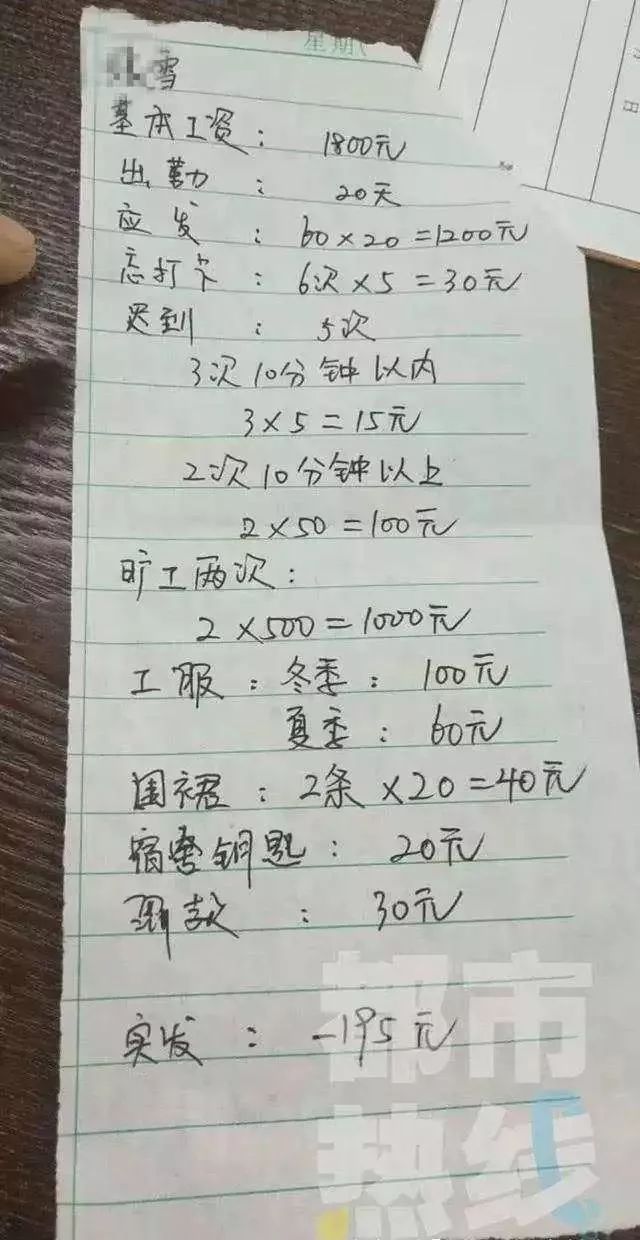 星期(
雪
基本工资: 1800元
出勤: 20天
应发: 60×20=1200元
忘打卡: 6次×5=30元
迟到: 5次
3次10分钟以内
3×5=15元
2次10分钟以上
2×50=100元
旷工两次:
2×500=1000元
工服:冬季: 100元
夏季: 60元
围裙: 2条×20=40元
宿舍钥匙: 20元
罚款: 30元
实发: -195元
都市
热线